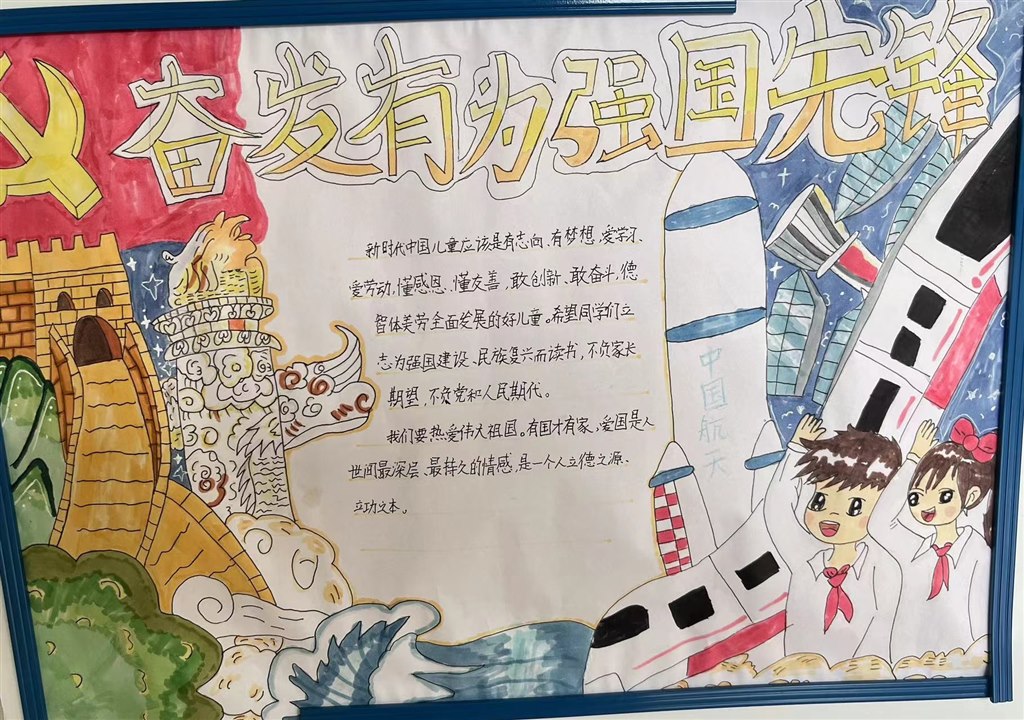 奋发有为强国先锋
新时代中国儿童应该是有志向、有梦想,爱学习、
爱劳动,懂感恩、懂友善,敢创新、敢奋斗,德
智体美劳全面发展的好儿童。希望同学们立
志为强国建设、民族复兴而读书,不负家长
期望,不负党和人民期代。
我们要热爱伟大祖国。有国才有家,爱国是人
世间最深层、最持久的情感,是一个人立德之源、
立功之本。
中国航天